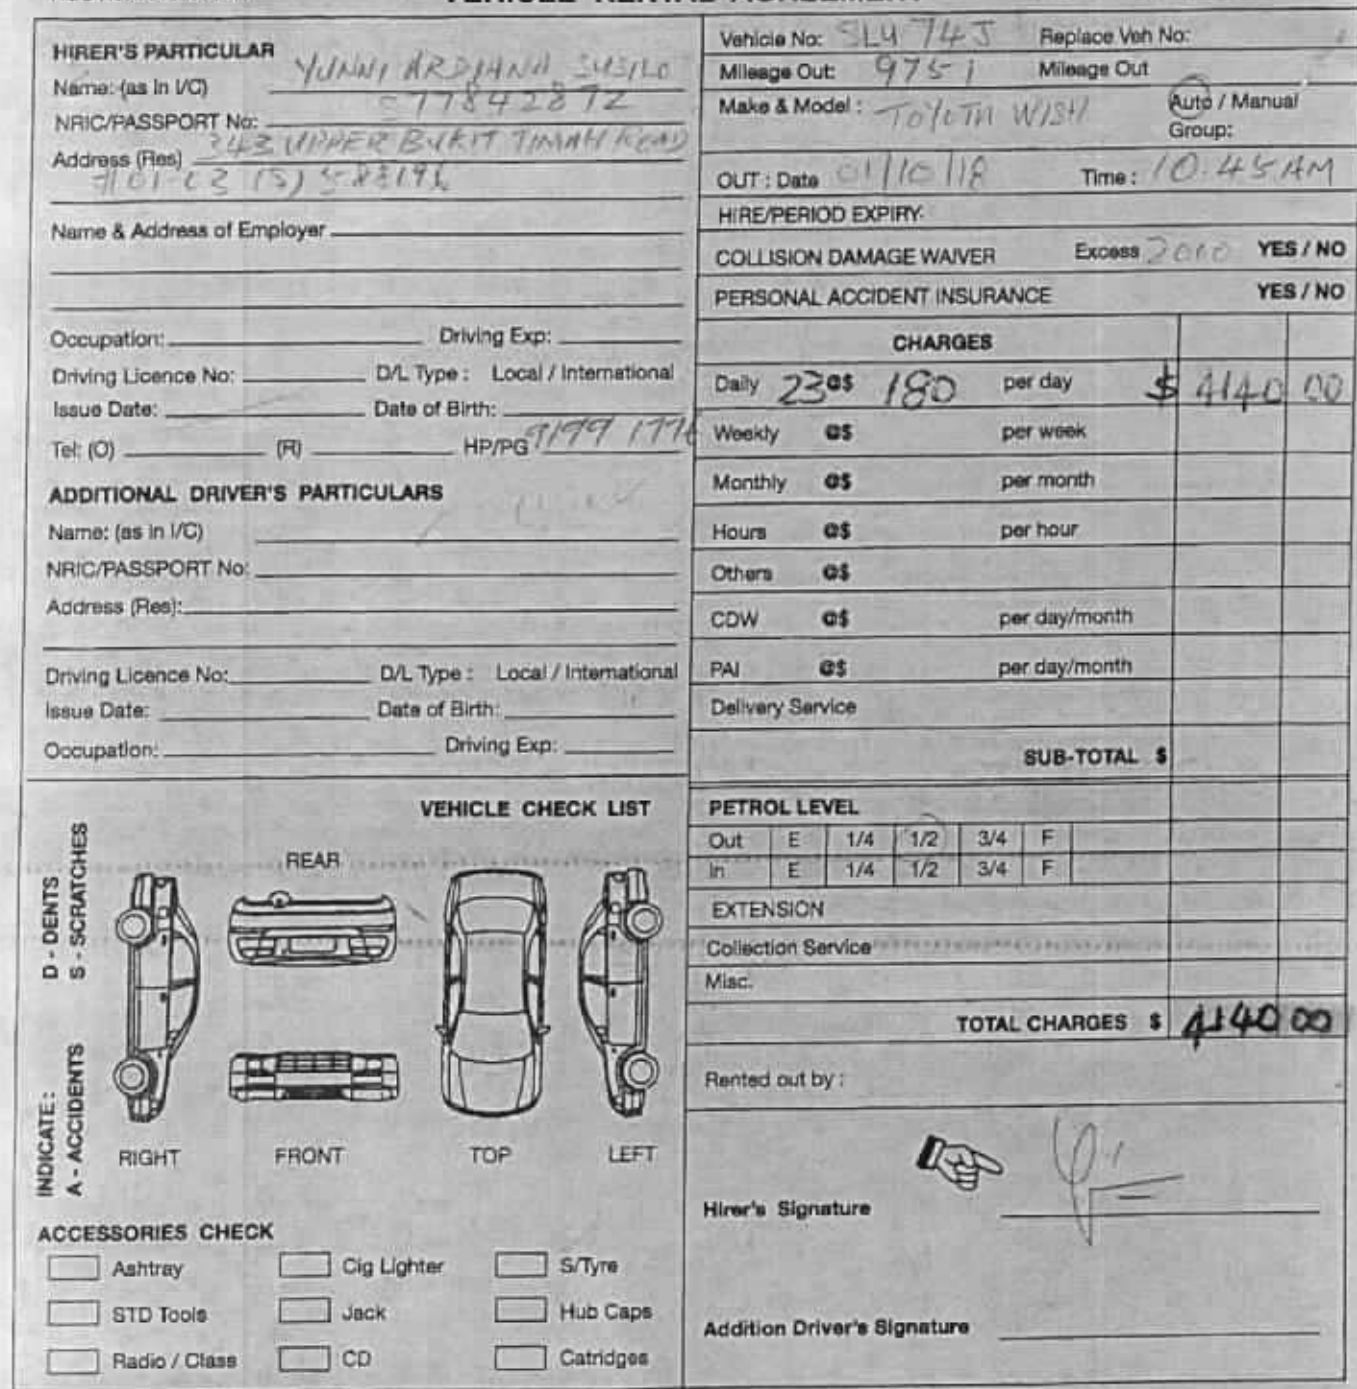 VEHICLE RENTAL AGREEMENT
HIRER'S PARTICULAR
Name: (as in I/C) YUNNI ARDIANA SUSILO
NRIC/PASSPORT No: S77842872
Address (Res) 343 UPPER BUKIT TIMAH ROAD
#01-03 (S) 588196
Name & Address of Employer
Occupation: Driving Exp:
Driving Licence No: D/L Type : Local / International
Issue Date: Date of Birth:
Tel: (O) (R) HP/PG 9199 1776
ADDITIONAL DRIVER'S PARTICULARS
Name: (as in I/C)
NRIC/PASSPORT No:
Address (Res):
Driving Licence No: D/L Type : Local / International
Issue Date: Date of Birth:
Occupation: Driving Exp:
VEHICLE CHECK LIST
D - DENTS
S - SCRATCHES
INDICATE :
A - ACCIDENTS
REAR
RIGHT FRONT TOP LEFT
ACCESSORIES CHECK
Ashtray Cig Lighter S/Tyre
STD Tools Jack Hub Caps
Radio / Class CD Catridges
Vehicle No: SLU 74J Replace Veh No:
Mileage Out: 9751 Mileage Out
Make & Model : TOYOTA WISH Auto / Manual
Group:
OUT : Date 01/10/18 Time : 10.45 AM
HIRE/PERIOD EXPIRY:
COLLISION DAMAGE WAIVER Excess 2000 YES / NO
PERSONAL ACCIDENT INSURANCE YES / NO
CHARGES
Daily 23 @$ 180 per day $ 4140 00
Weekly @$ per week
Monthly @$ per month
Hours @$ per hour
Others @$
CDW @$ per day/month
PAI @$ per day/month
Delivery Service
SUB-TOTAL $
PETROL LEVEL
Out E 1/4 1/2 3/4 F
In E 1/4 1/2 3/4 F
EXTENSION
Collection Service
Misc.
TOTAL CHARGES $ 4140 00
Rented out by :
Hirer's Signature
Addition Driver's Signature